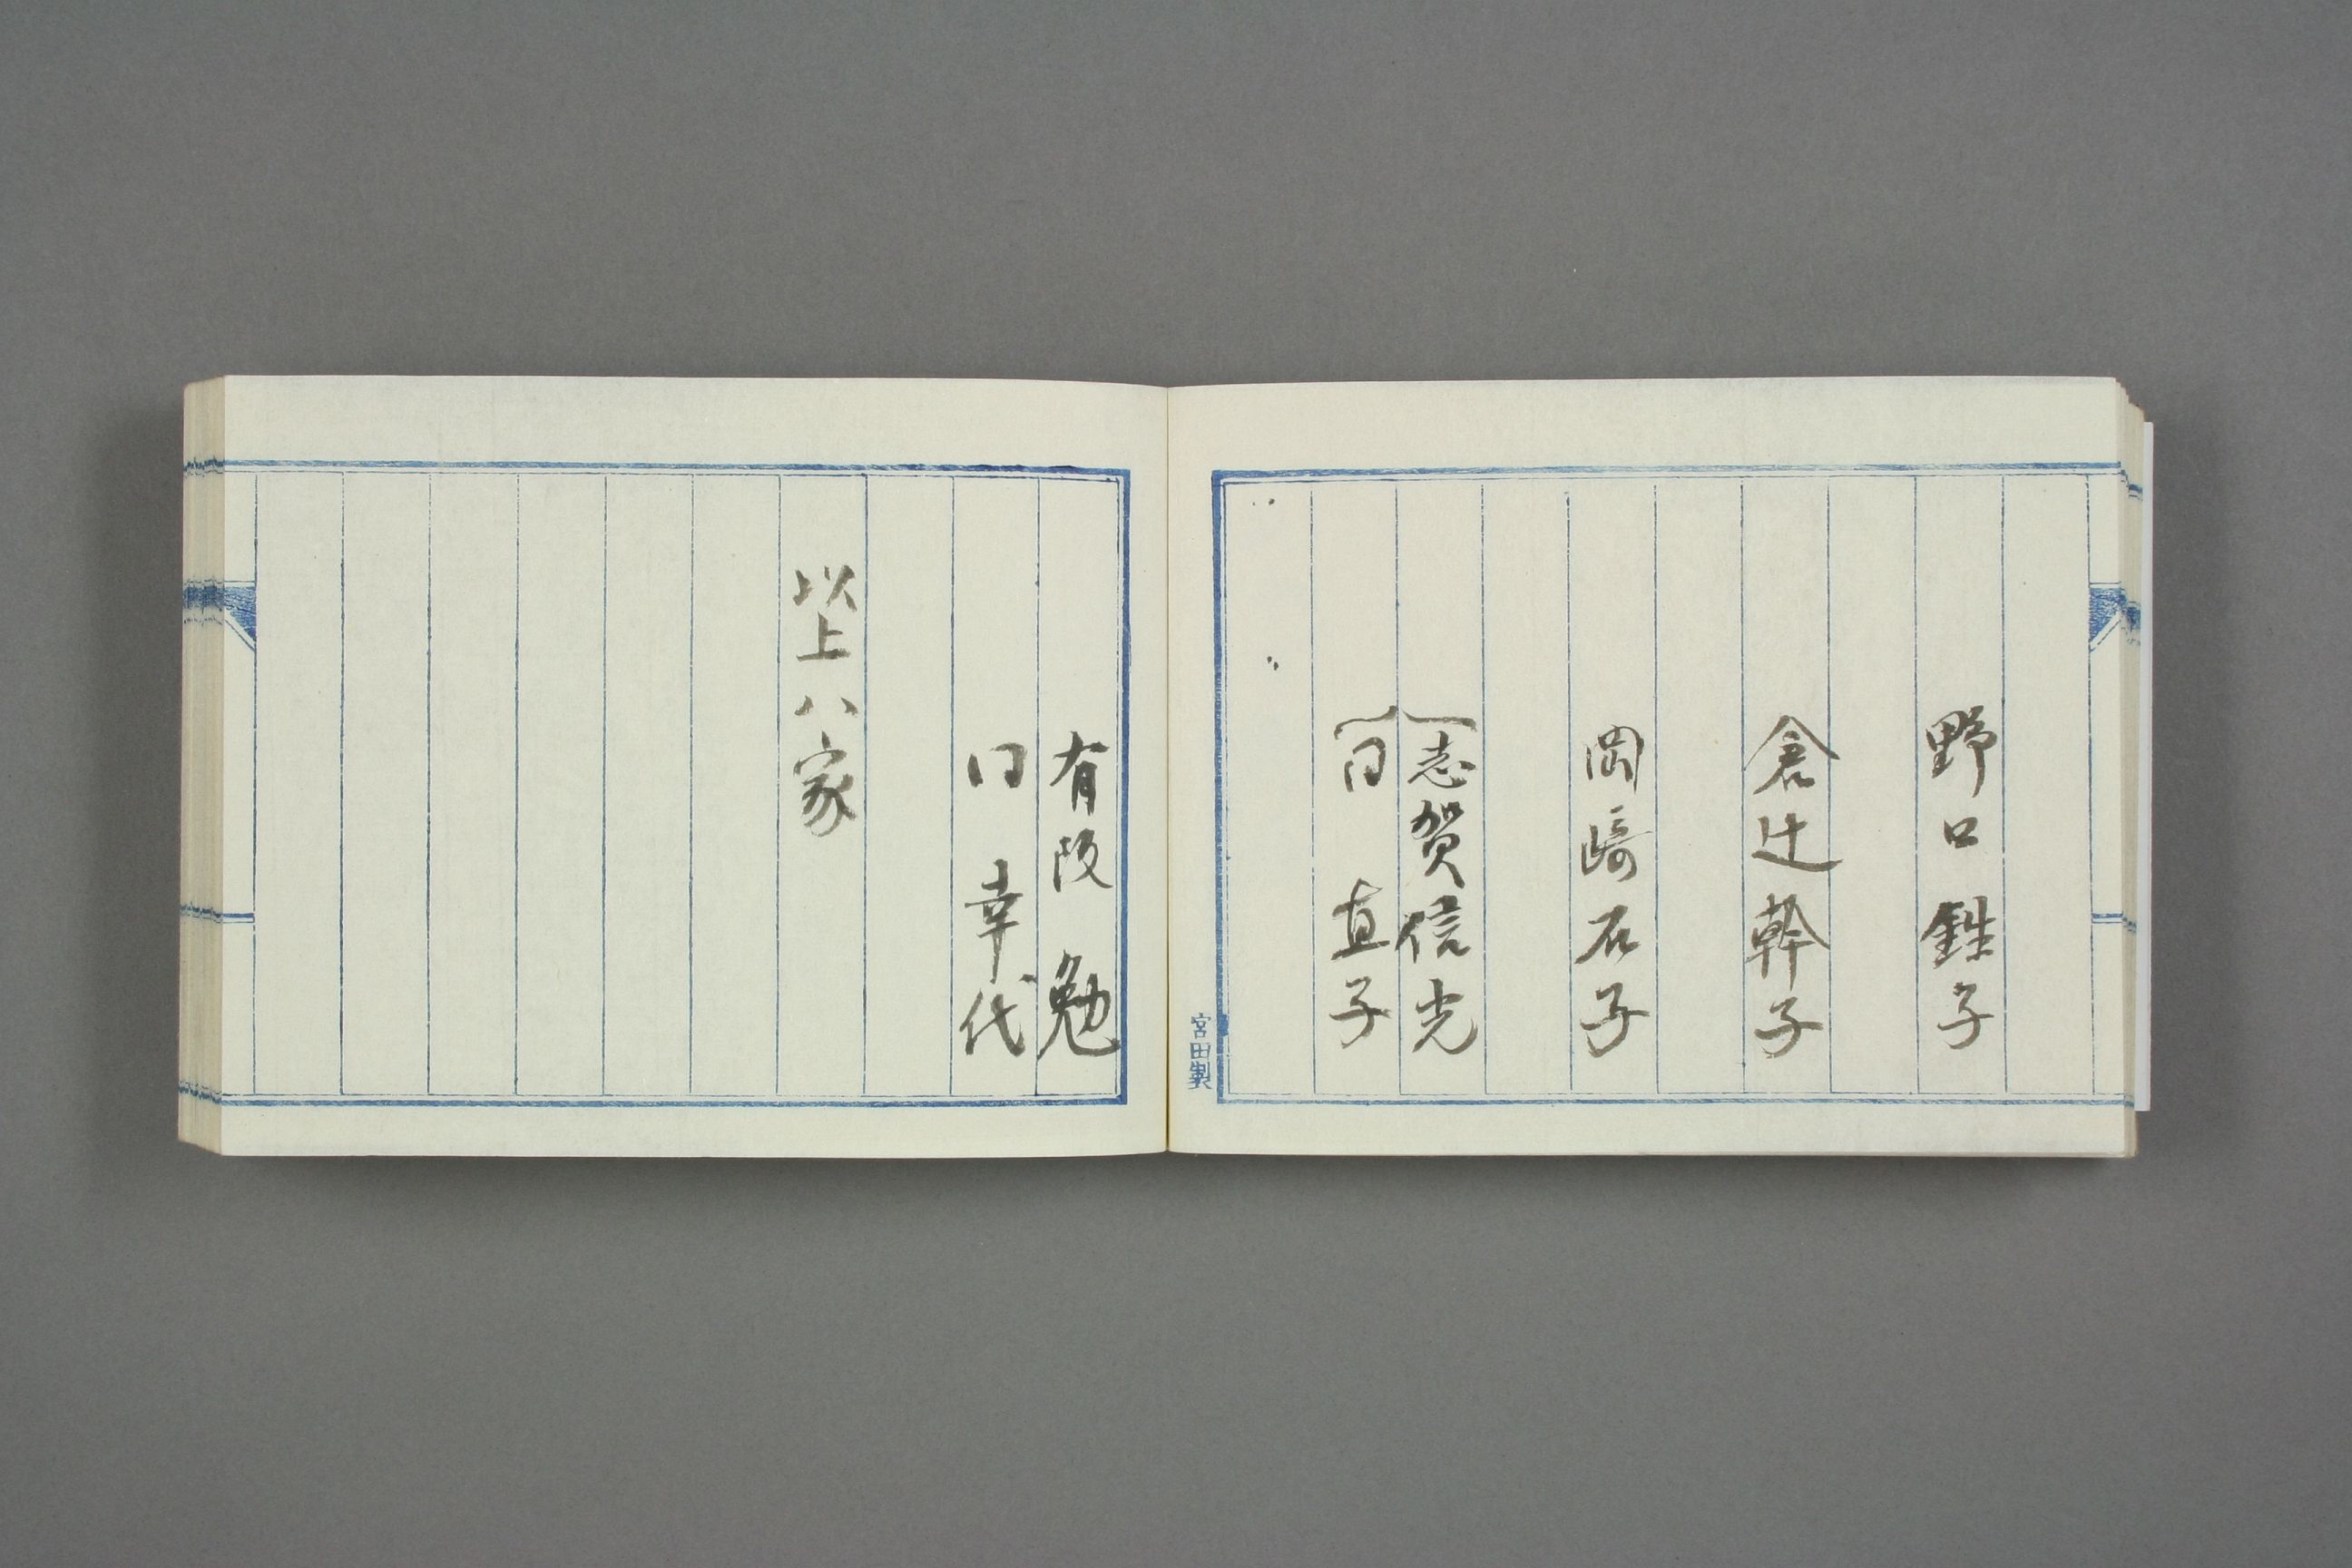 野口銈子
倉辻幹子
岡﨑石子
志賀信光
同 直子
宮田製
有阪 勉
同 幸代
以上八家